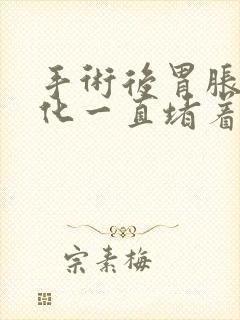 手術後胃脹
化一直堵着
宗素梅